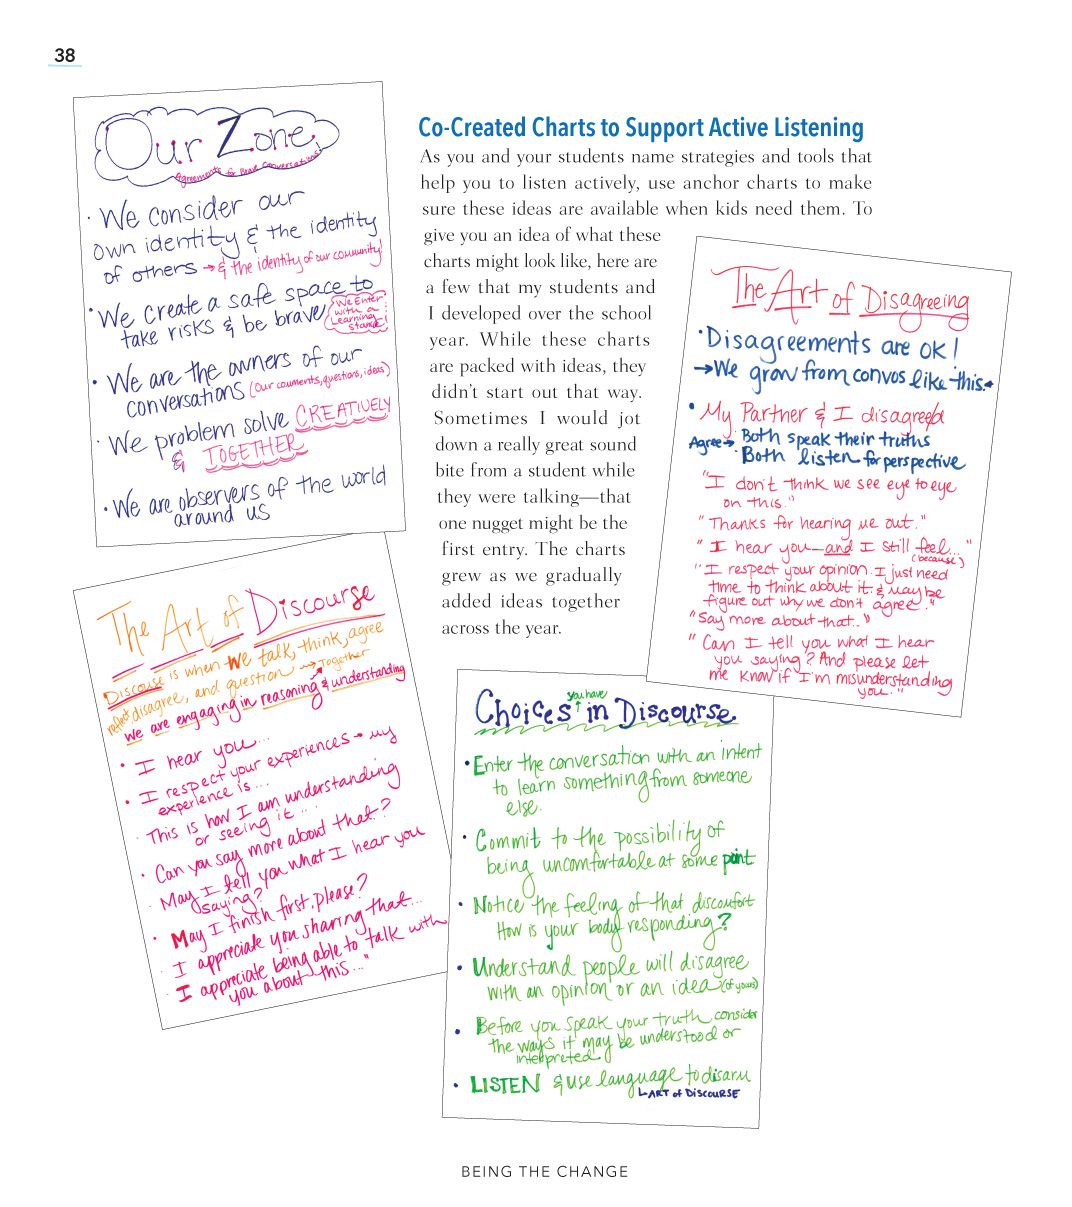 38
Our Zone
Agreements for Brave Conversations!
• We consider our
own identity & the identity
of others → & the identity of our community!
• We create a safe space to
take risks & be brave
We Enter
with a
Learning
Stance!
• We are the owners of our
conversations (our comments, questions, ideas)
• We problem solve CREATIVELY
& TOGETHER
• We are observers of the world
around us
Co-Created Charts to Support Active Listening
As you and your students name strategies and tools that
help you to listen actively, use anchor charts to make
sure these ideas are available when kids need them. To
give you an idea of what these
charts might look like, here are
a few that my students and
I developed over the school
year. While these charts
are packed with ideas, they
didn't start out that way.
Sometimes I would jot
down a really great sound
bite from a student while
they were talking—that
one nugget might be the
first entry. The charts
grew as we gradually
added ideas together
across the year.
The Art of Disagreeing
• Disagreements are ok!
→ We grow from convos like this.
• My Partner & I disagreed
Agree → • Both speak their truths
• Both listen for perspective
"I don't think we see eye to eye
on this."
"Thanks for hearing me out."
"I hear you—and I still feel..."
(because)
"I respect your opinion. I just need
time to think about it & maybe
figure out why we don't agree."
"Say more about that.."
"Can I tell you what I hear
you saying? And please let
me know if I'm misunderstanding
you."
The Art of Discourse
Discouse is when we talk, think, agree
reflect disagree, and question → Together
we are engaging in reasoning & understanding
• I hear you...
• I respect your experiences → my
experience is...
• This is how I am understanding
or seeing it...
• Can you say more about that?
• May I tell you what I hear you
saying?
• May I finish first, please?
• I appreciate you sharing that...
• I appreciate being able to talk with
you about this..."
Choices you have in Discourse
• Enter the conversation with an intent
to learn something from someone
else.
• Commit to the possibility of
being uncomfortable at some point
• Notice the feeling of that discomfort
How is your body responding?
• Understand people will disagree
with an opinion or an idea (of yours)
• Before you speak your truth consider
the ways it may be understood or
interpreted.
• LISTEN & use language to disarm
ART of DISCOURSE
BEING THE CHANGE